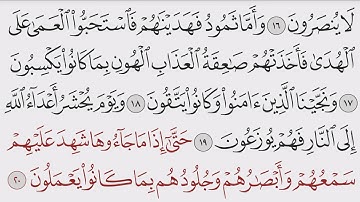 لَا يُنصَرُونَ ١٦ وَأَمَّا ثَمُودُ فَهَدَيْنَٰهُمْ فَٱسْتَحَبُّوا۟ ٱلْعَمَىٰ عَلَى
ٱلْهُدَىٰ فَأَخَذَتْهُمْ صَٰعِقَةُ ٱلْعَذَابِ ٱلْهُونِ بِمَا كَانُوا۟ يَكْسِبُونَ
١٧ وَنَجَّيْنَا ٱلَّذِينَ ءَامَنُوا۟ وَكَانُوا۟ يَتَّقُونَ ١٨ وَيَوْمَ يُحْشَرُ أَعْدَآءُ ٱللَّهِ
إِلَى ٱلنَّارِ فَهُمْ يُوزَعُونَ ١٩ حَتَّىٰٓ إِذَا مَا جَآءُوهَا شَهِدَ عَلَيْهِمْ
سَمْعُهُمْ وَأَبْصَٰرُهُمْ وَجُلُودُهُم بِمَا كَانُوا۟ يَعْمَلُونَ ٢٠